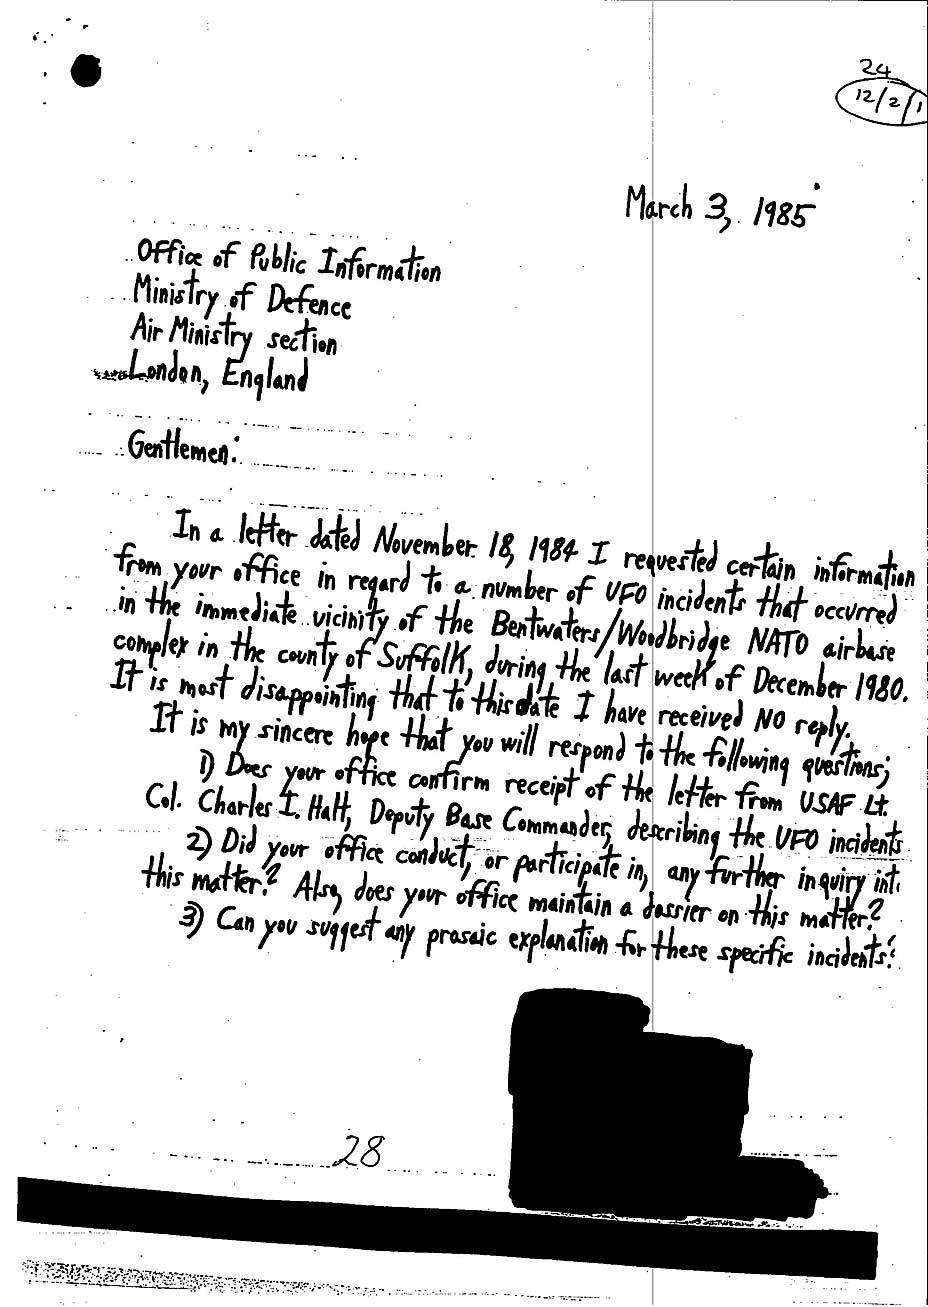 24
12/2/1
March 3, 1985
Office of Public Information
Ministry of Defence
Air Ministry section
London, England
Gentlemen:
In a letter dated November 18, 1984 I requested certain information
from your office in regard to a number of UFO incidents that occurred
in the immediate vicinity of the Bentwaters/Woodbridge NATO airbase
complex in the county of Suffolk, during the last week of December 1980.
It is most disappointing that to this date I have received NO reply.
It is my sincere hope that you will respond to the following questions;
1) Does your office confirm receipt of the letter from USAF Lt.
Col. Charles I. Halt, Deputy Base Commander, describing the UFO incidents
2) Did your office conduct, or participate in, any further inquiry int
this matter? Also, does your office maintain a dossier on this matter?
3) Can you suggest any prosaic explanation for these specific incidents?
28